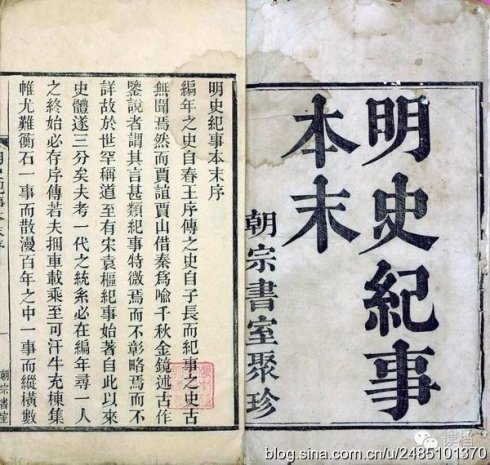 明史紀事
本末
朝宗書室聚珍
明史紀事本末序
編年之史自春王序傳之史自子長而紀事之史古
無聞焉然而賈誼賈山借秦爲喻千秋金鏡述古作
鑒說者謂其言甚類紀事特微焉而不彰略焉而不
詳故於世罕稱道至有宋袁樞紀事始著自此以來
史體遂三分矣夫考一代之統系必在編年尋一人
之終始必存序傳若夫捆車載乘至可汗牛充棟集
帷尤難衡石一事而散漫百年之中一事而縱橫數
朝宗書室
blog.sina.com.cn/u/2485101370